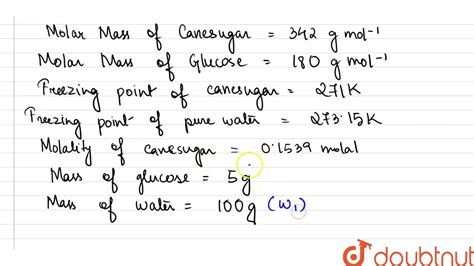 Molar Mass of Canesugar = 342 g mol⁻¹
Molar Mass of Glucose = 180 g mol⁻¹
Freezing point of canesugar = 271K
Freezing point of pure water = 273.15K
Molality of canesugar = 0.1539 molal
Mass of glucose = 5g
Mass of water = 100g (W₁)
doubtnut